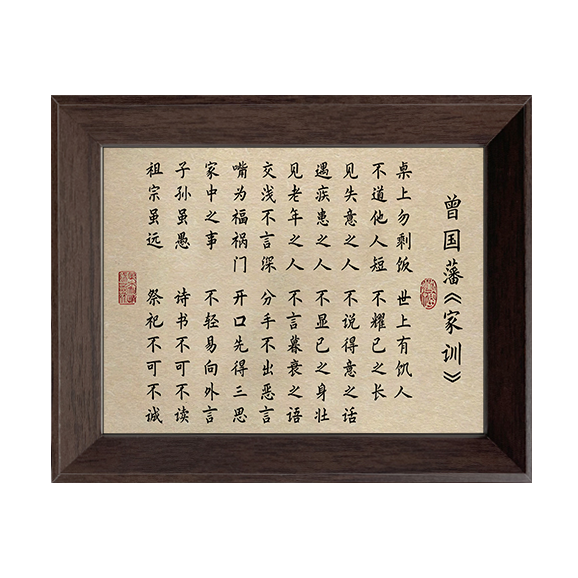 曾国藩《家训》
桌上勿剩饭 世上有饥人
不道他人短 不耀己之长
见失意之人 不说得意之话
遇疾患之人 不显己之身壮
见老年之人 不言暮衰之语
交浅不言深 分手不出恶言
嘴为福祸门 开口先得三思
家中之事 不轻易向外言
子孙虽愚 诗书不可不读
祖宗虽远 祭祀不可不诚